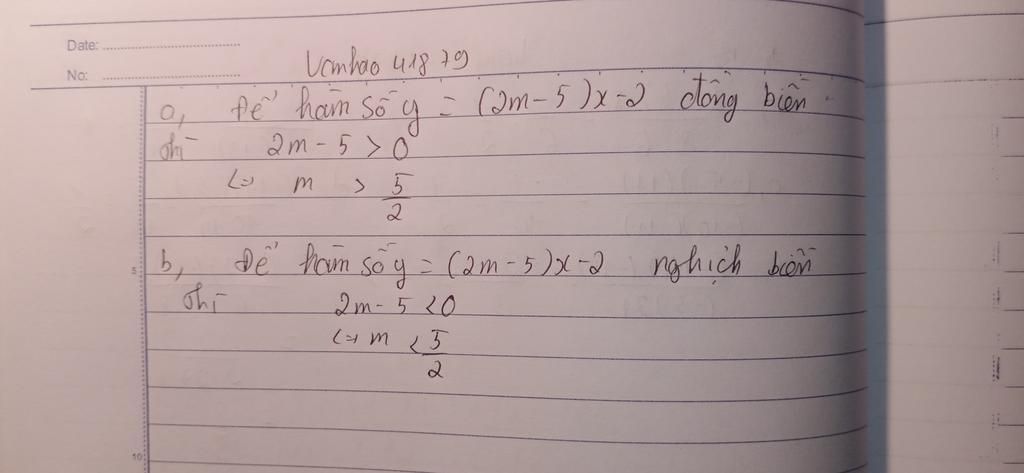 Date:
No:
Vcmhao 41879
a, Để hàm số y = (2m-5)x-2 đồng biến.
thì 2m-5>0
<=> m > 5/2
b, Để hàm số y = (2m-5)x-2 nghịch biến
5
thì 2m-5<0
<=> m < 5/2
10